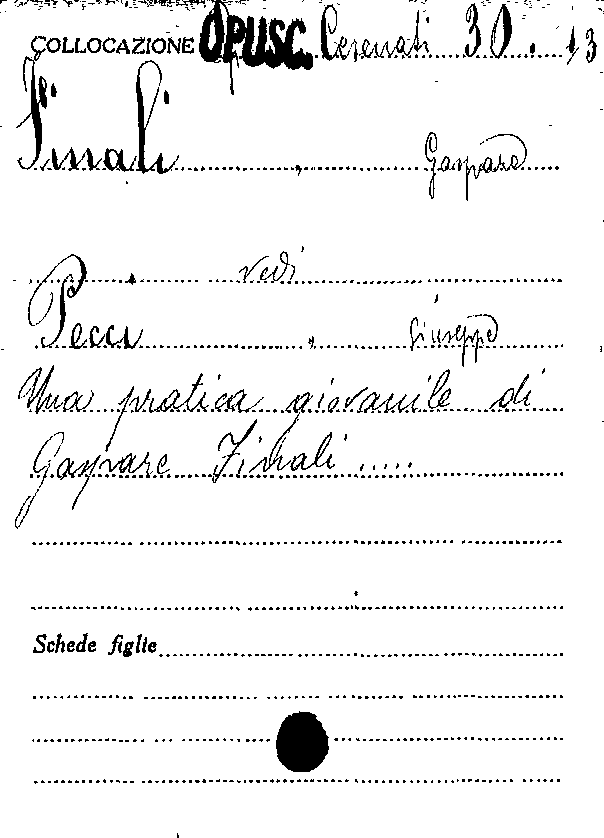 COLLOCAZIONE OPUSC. Cesenati 30. 13
Finali , Gaspare
vedi
Pecci , Giuseppe
Una pratica giovanile di
Gaspare Finali .....
Schede figlie